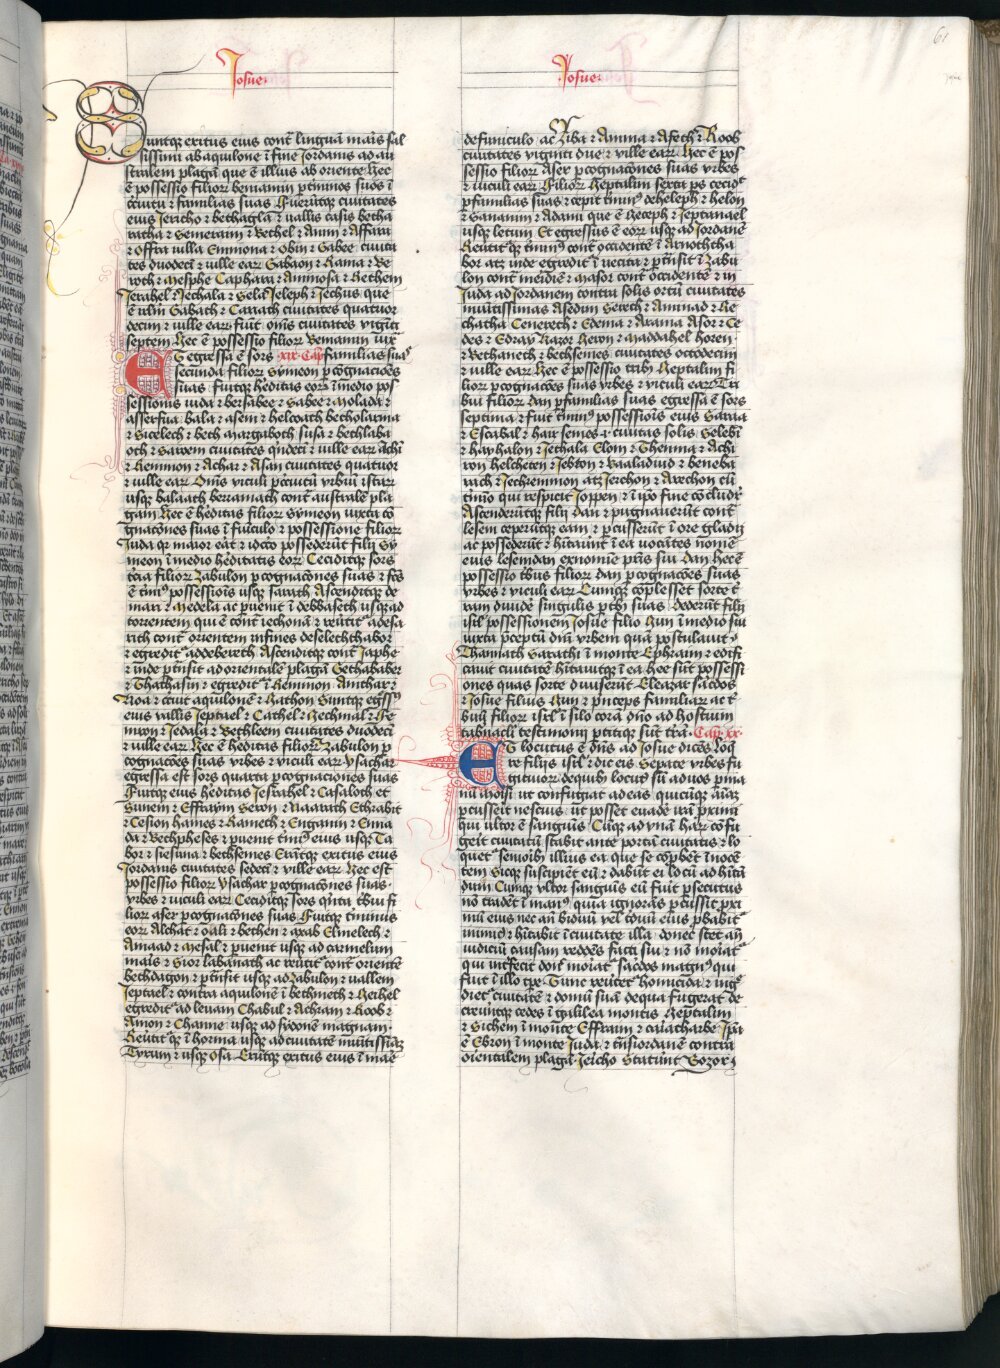 Josue
Josue
61
Suntqȝ exitus eius cont̄ linguā maris sal
sissimi ab aquilone ī fine Jordanis ad au
stralem plagā que ē illius ab oriente Hec
ē possessio filioꝝ beniamin ꝑ t̄minos suos ī
circuitu ⁊ familias suas Fueruntqȝ ciuitates
eius Jericho ⁊ bethagla ⁊ uallis casis betha
ratha ⁊ Semeraim ⁊ Bethel ⁊ Auim ⁊ Affara
⁊ Offra uilla Emmona ⁊ Ofni ⁊ Gabee ciuita
tes duodeci ⁊ uille eaꝝ Gabaon ⁊ Rama ⁊ Be
roth ⁊ Mesphe Caphara ⁊ Ammosa ⁊ Rethem
Jerahel ⁊ Techala ⁊ Sela Jeleph ⁊ Jechus que
ē irl̄m Gabath ⁊ Cariath ciuitates quatuor
decim ⁊ uille eaꝝ fiūt om̄s ciuitates viginti
septem Hec ē possessio filioꝝ Beniamin iux̄
Et egressa ē sors xix Cap̄ familias suas
secunda filioꝝ Symeon ꝑ cognacōes
suas Fuitqȝ h̄editas eoꝝ ī medio pos
sessionis iuda ⁊ bersabee ⁊ Sabee ⁊ molada ⁊
asersua bala ⁊ asem ⁊ helcoath betholarma
⁊ Sicelech ⁊ beth margaboth susa ⁊ bethlaba
oth ⁊ Saroem ciuitates q̄ndeci ⁊ uille eaꝝ achi
⁊ Remmon ⁊ Achar ⁊ Asan ciuitates quatuor
⁊ uille eaꝝ Om̄s viculi ꝑ circuitū vrbiū istaꝝ
usqȝ balaath berramath cont̄ australē pla
gam Hec ē h̄editas filioꝝ Symeon iuxta co
gnacōnes suas ī fuiculo ⁊ possessione filioꝝ
Juda qꝛ maior eāt ⁊ idcīo possederūt filij Sy
meon ī medio h̄editatis eoꝝ Ceciditqȝ sors
t̄cia filioꝝ Zabulon ꝑ cognacōnes suas ⁊ f̄cs
ē t̄minꝰ possessiois usqȝ Sarath Ascenditqȝ de
mari ⁊ Medela ac puenit ī debbaseth usqȝ ad
torrentem qui ē cont̄ iechonā ⁊ reūtit̄ a desa
rith cont̄ orientem ī nfines deselechthabor
⁊ egredit̄ addebereth Ascenditqȝ cont̄ Japhe
⁊ inde ꝑtn̄sit ad orientalē plagā Gethahaber
⁊ Thachasin ⁊ egredit̄ ī Remmon Amthar ⁊
Noa ⁊ circuit aquilonē ⁊ Nathon Suntqȝ egs̄s
eius vallis Jeptael ⁊ Cathel ⁊ Nechmal ⁊ Se
mron ⁊ Jedala ⁊ Bethleem ciuitates duodeci
⁊ uille eaꝝ Hec ē h̄editas filioꝝ Zabulon ꝑ
cognacōes suas vrbes ⁊ viculi eaꝝ Ysachar
egressa est sors quarta ꝑ cognaciones suas
Fuitqȝ eius h̄editas Jesrahel ⁊ Casaloch et
Sunem ⁊ Effraym Seon ⁊ Naarath Ethrabit
⁊ Cesion hames ⁊ Rameth ⁊ Enganin ⁊ Enna
da ⁊ Bethpheses ⁊ puenit t̄minꝰ eius usqȝ Ta
bor ⁊ siesima ⁊ bethsemes Erūtqȝ exitus eius
Jordanis ciuitates sedeci ⁊ ville eaꝝ Hec est
possessio filioꝝ Ysachar ꝑ cognacōnes suas
vrbes ⁊ uiculi eaꝝ Ceciditqȝ sors q̄nta t̄bui fi
lioꝝ aser ꝑ cognacōnes suas Fuitqȝ t̄minus
eoꝝ Alchat ⁊ oali ⁊ bethen ⁊ axab Elmelech ⁊
Amaad ⁊ mesal ⁊ puenit usqȝ ad carmelum
maris ⁊ Sior labanath ac reūtit̄ cont̄ orientē
bethdagon ⁊ ꝑtn̄sit usqȝ ad Zabulon ⁊ uallem
Jeptael ⁊ contra aquilonē ī bethmech ⁊ Neihel
egredit̄ ad leuam Chabul ⁊ Achram ⁊ Roob ⁊
Amon ⁊ Channe usqȝ ad sydonē magnam
Reūtit̄qȝ ī horma usqȝ ad ciuitatē mūitissimā
Tyrum ⁊ usqȝ Osa Erūtqȝ exitus eius ī maē
de funiculo ac Ziba ⁊ Amma ⁊ Afech ⁊ Roob
ciuitates viginti due ⁊ ville eaꝝ Hec ē pos
sessio filioꝝ Aser ꝑ cognacōnes suas vrbes
⁊ uiculi eaꝝ Filioꝝ Neptalim sexta ps cecidᵗ
ꝑ familias suas ⁊ cepit t̄minꝰ deheleph ⁊ helon
⁊ Sananim ⁊ Adami que ē Neceph ⁊ Jeptanael
usqȝ letum Et egressus ē eoꝝ usqȝ ad Jordanē
Reūtit̄qȝ t̄minꝰ cont̄ occidentē ī Arnoththa
bor atqȝ inde egredit̄ ī uccita ⁊ ꝑtn̄sit ī Zabu
lon cont̄ meidiē ⁊ masor cont̄ occidentē ⁊ in
Juda ad Jordanem contra solis ortū ciuitates
mūitissimas Asedim Serech ⁊ Ammad ⁊ Re
chatha Cenerech ⁊ Edema ⁊ Arama Asor ⁊ Ce
des ⁊ Edray Nazor Neron ⁊ Maddahel horen
⁊ Bethanech ⁊ bethsemes ciuitates octodecim
⁊ uille eaꝝ Hec ē possessio trib̄ Neptalim fi
lioꝝ ꝑ cognacōes suas vrbes ⁊ viculi eaꝝ Tri
bui filioꝝ dan ꝑ familias suas egressa ē sors
septima ⁊ fuit t̄minꝰ possessionis eius Saraa
⁊ Escabal ⁊ hair semes ⁊ ciuitas solis Selebi
⁊ hayhalon ⁊ Jethala Elom ⁊ Themna ⁊ Achi
ron helchecen ⁊ Jebton ⁊ Baaladiud ⁊ beneba
rach ⁊ Jechremmon atqȝ Jerchon ⁊ Arechon cū
t̄mino qui respicit Joppen ⁊ ī ipo fine cōcludit̄
Ascenderūtqȝ filij dan ⁊ pugnauerūt cont̄
lesem ceperūtqȝ eam ⁊ ꝑcusserūt ī ore gladii
ac possederūt ⁊ h̄itauīt ī ea uocātes nomē
eius lesemdan ex nomīe p̄ris sui dan Hec ē
possessio t̄bus filioꝝ dan ꝑ cognacōes suas
vrbes ⁊ viculi eaꝝ Cumqȝ cōplesset sorte t̄
ram diuidē singulis ꝑ t̄b̄ suas dederūt filij
isr̄l possessionem Josue filio Nun ī medio sui
iuxta p̄ceptū dn̄i vrbem quā postulauit
Thamnath Sarathi ī monte Ephraim ⁊ edifi
cauit ciuitatē h̄itauitqȝ ī ea Hee sūt possessi
ones quas sorte diuiserūt Eleazar sacdos
⁊ Josue filius Nun ⁊ p̄ncipes familiaꝝ ac t̄
buū filioꝝ isr̄l ī silo corā dn̄o ad hostium
tabnacl̄i testimonij ꝑtitiqȝ sūt t̄ra Cap̄ xx
Et locutus ē dn̄s ad Josue dicēs Loq̄
re filijs isr̄l ⁊ dic eis Sepate vrbes fu
gitiuoꝝ de quib̄ locutꝰ sū ad uos ꝑ ma
nū moisi ut confugiat ad eas quicūqȝ aīam
ꝑcusserit nescius ut posset euadē irā ꝑximi
qui ultor ē sanguīs Cūqȝ ad vnā haꝝ cōfu
gerit ciuitatū stabit ante portā ciuitatis ⁊ lo
quet̄ senioib̄ illius ea que se cōꝑbēt īnocē
tem Sicqȝ suscipiēt eū ⁊ dabūt ei locū ad h̄itā
dum Cumqȝ vltor sanguīs eū fuit ꝑsecutus
nō tradēt ī manꝰ quia ignorās ꝑcussit ꝑxi
mū eius nec an̄ biduū vel t̄duū eius ꝓbabit̄
inimicꝰ ⁊ h̄itabit ī ciuitate illa donec stet an̄
iudiciū causam reddēs facti sui ⁊ nō moiat̄
qui int̄fecit don̄ moiat̄ sacdos magnꝰ qui
fuit ī illo tꝑe Tunc reūtet̄ homicida ⁊ inḡ
diet̄ ciuitatē ⁊ domū suā de qua fugerat de
creuitqȝ cedes ī galilea montis Neptalim
⁊ Sichem ī monte Effraim ⁊ cariatharbe Ipa
ē Ebron ī monte Juda ⁊ t̄nsiordanē contra
oientalem plagā Jericho Statuīt Bozor ⁊